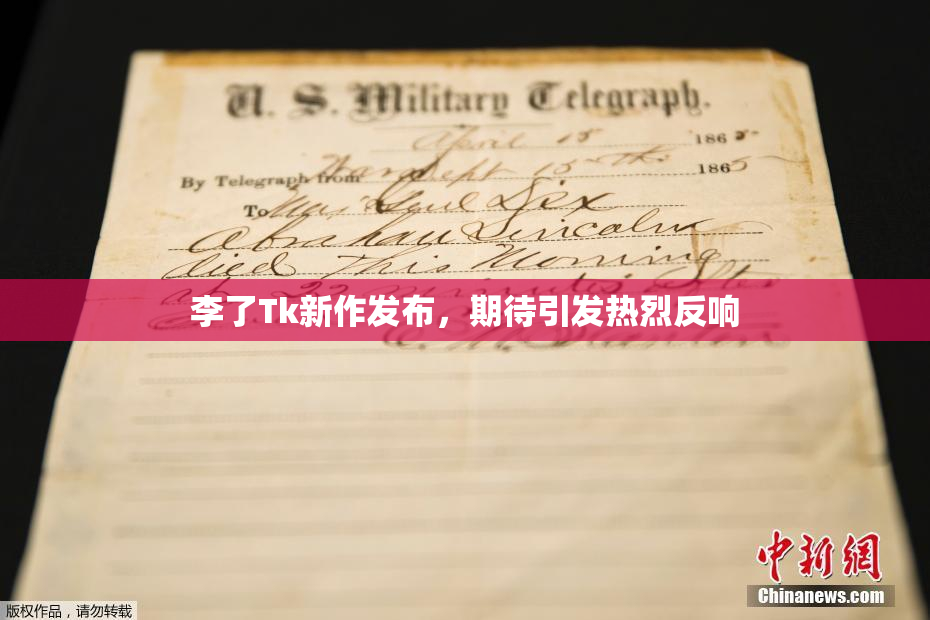 U. S. Military Telegraph.
April 15 1865-
By Telegraph from War Dept 15th 1865
To Maj Genl Dix
Abraham Lincoln
died This Morning
at 22 minutes after
李了Tk新作发布，期待引发热烈反响
E. M. Stanton
中新网
Chinanews.com
版权作品，请勿转载